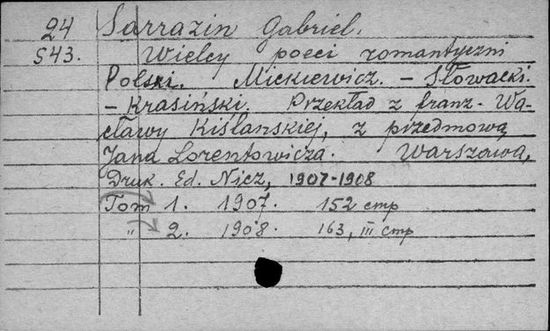 24 Sarrazin Gabriel.
S43. Wielcy poeci romantyczni
Polski. Mickiewicz. – Słowacki.
– Krasiński. Przekład z franz. Wa-
cławy Kiślanskiej, z przedmową
Jana Lorentowicza. Warszawa,
Druk. Ed. Nicz, 1907-1908
Tom 1. 1907. 152 стр
" 2. 1908. 163, III стр